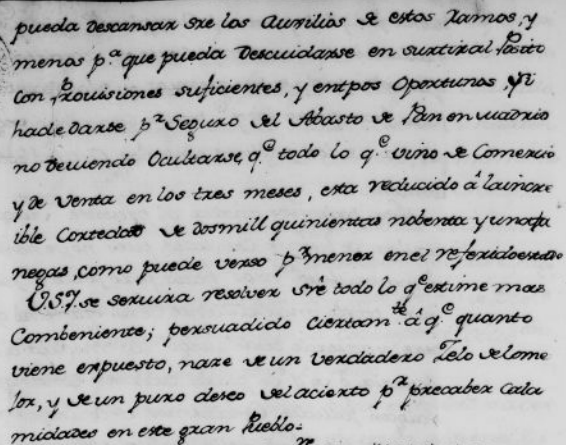 pueda descansar sre los Auxilios de estos Ramos, y
menos p.a que pueda Descuidarse en surtir al Posito
Con Provisiones suficientes, y entpos Oportunos, si
hade darse p.r Seguro del Abasto de Pan en madrid
no deviendo Ocultarse, q.e todo lo q.e vino de Comercio
y de venta en los tres meses, esta reducido â la incre
ible Cortedad de dosmill quinientas nobenta y una fa
negas, como puede verse p.r menor enel referido estado
V.S.Y. se servira resolver sre todo lo q.e estime mas
Combeniente; persuadido Ciertam.te â q.e quanto
viene expuesto, naze de un verdadero Zelo delo me
jor, y de un puro deseo del acierto p.a precaber Cala
midades en este gran Pueblo.